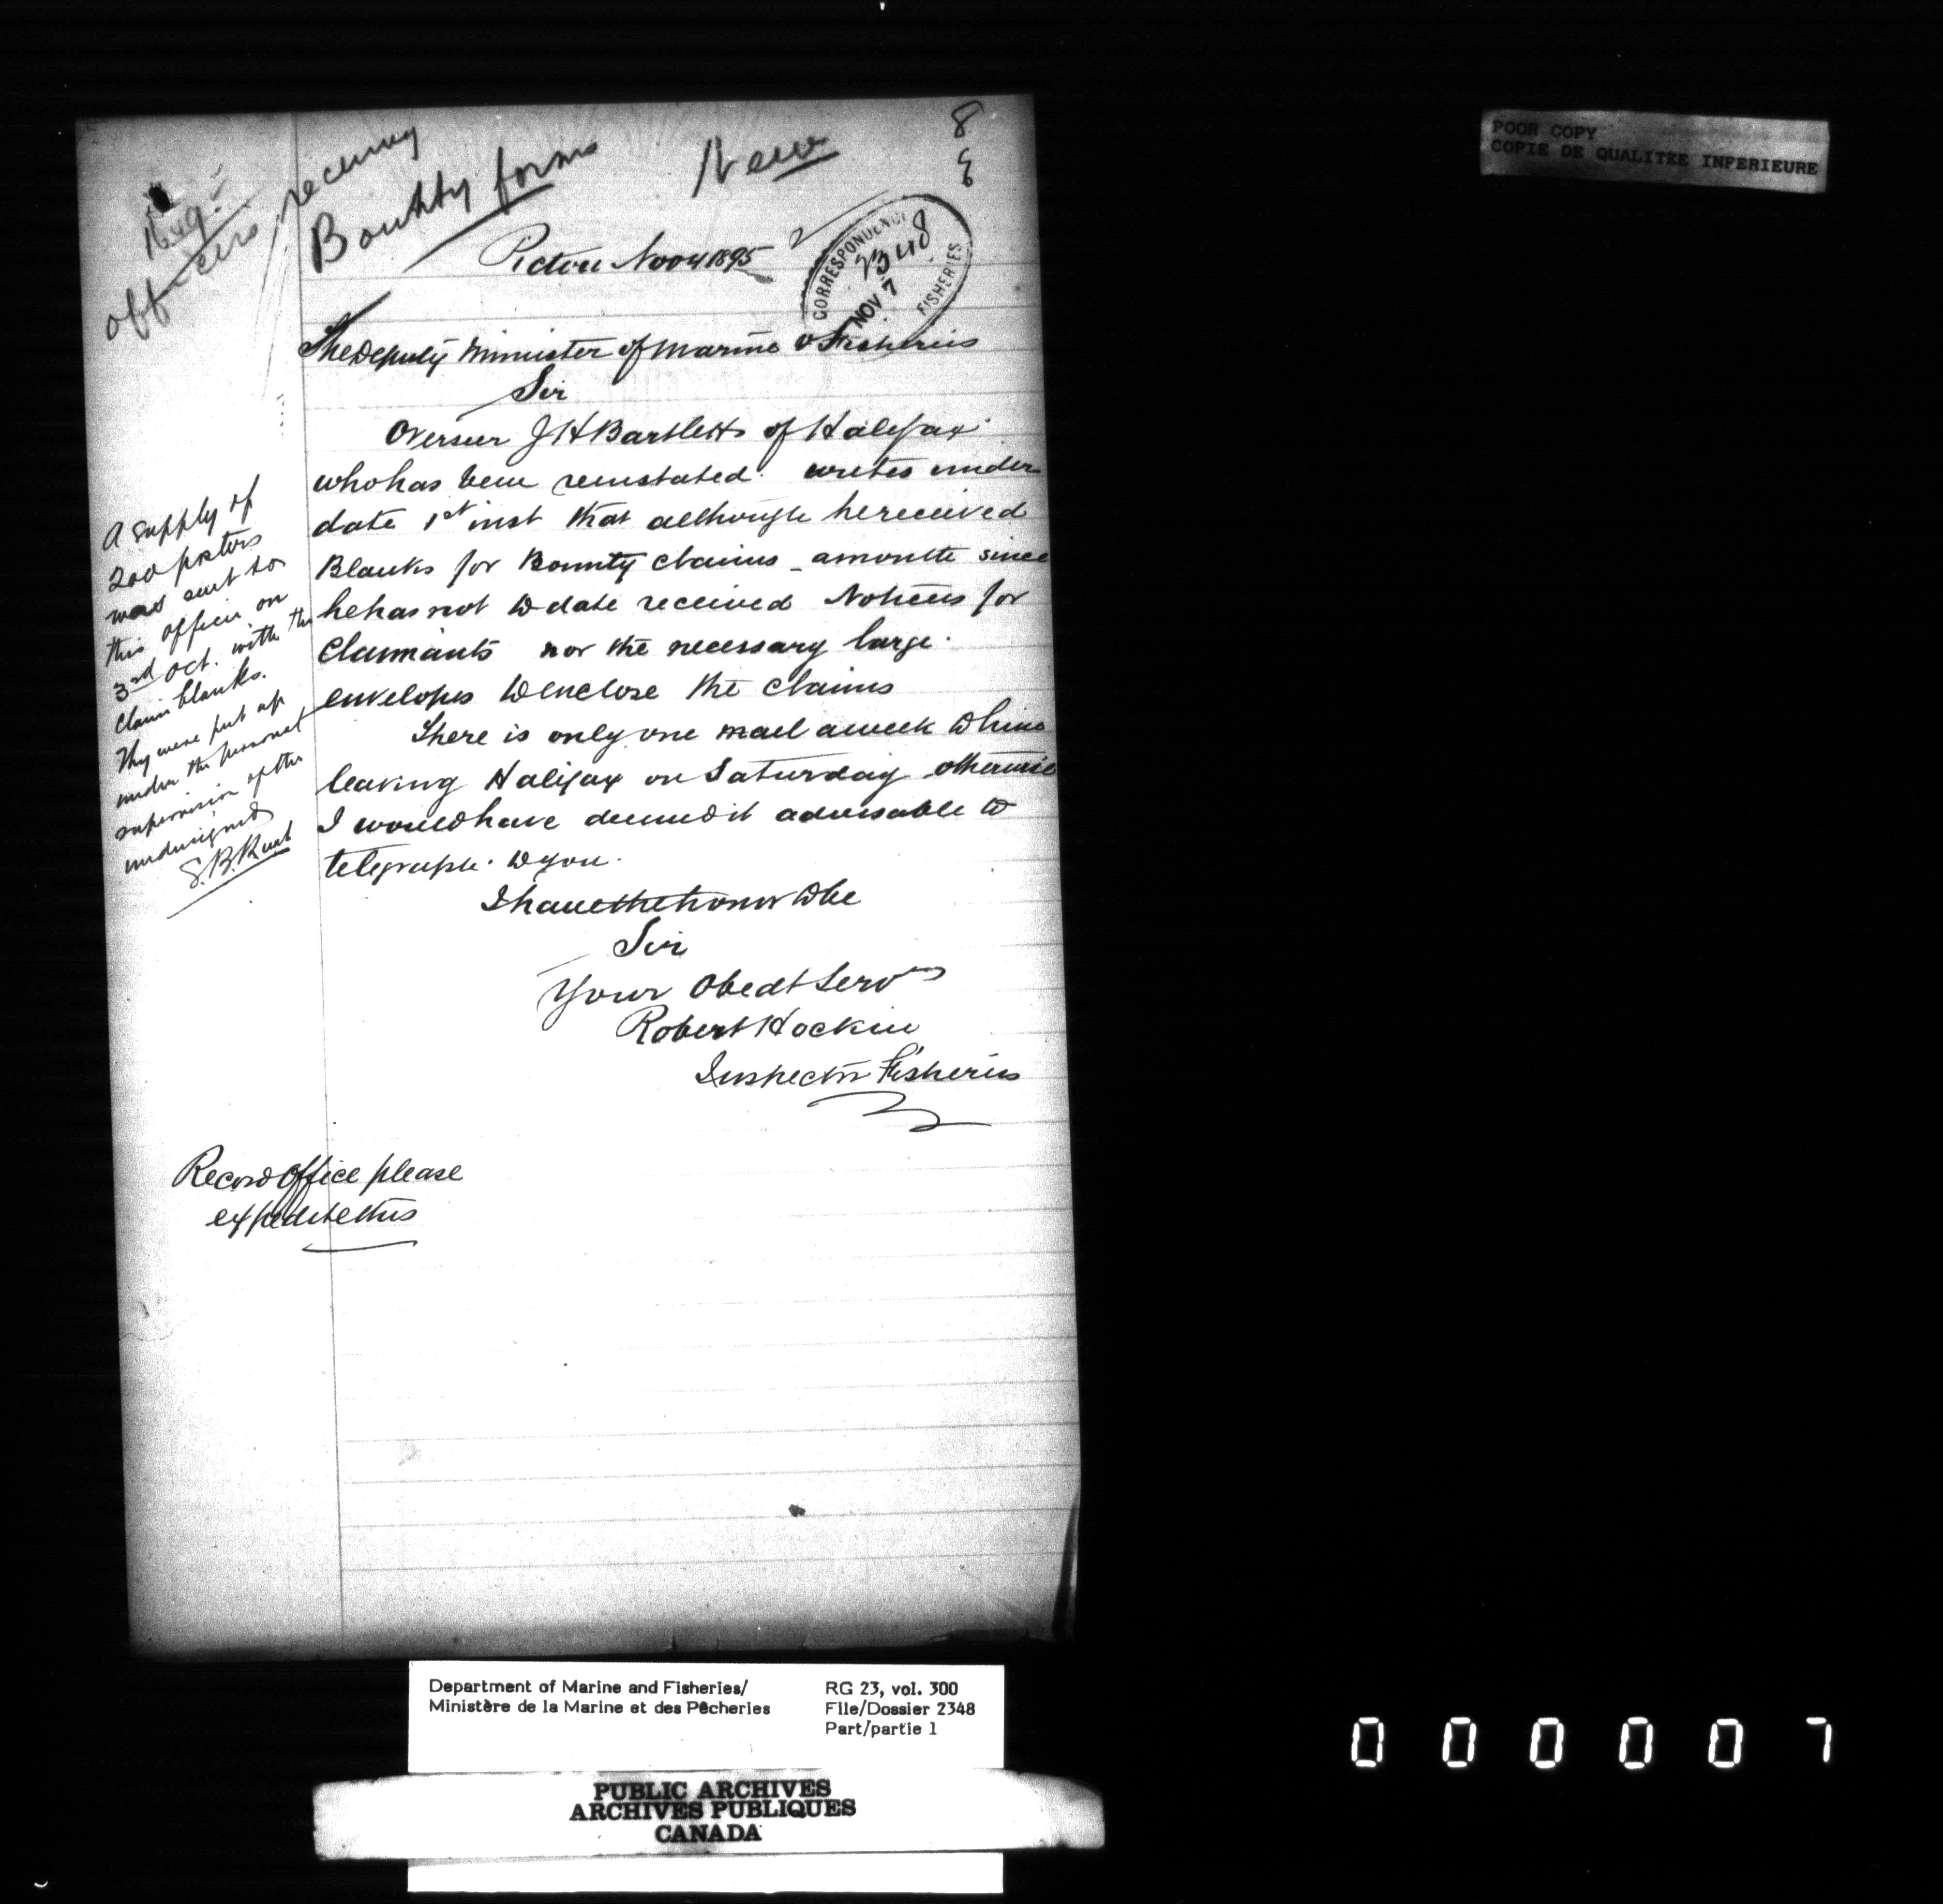 8
Reg
officers receiving
Bounty forms
New
Pictou Nov 4 1895
CORRESPONDENCE
2348
NOV 7
FISHERIES
The Deputy Minister of Marine & Fisheries
Sir
Overseer J H Bartlett of Halifax
who has been reinstated. writes under
date 1st inst that although he received
Blanks for Bounty claims - a month since
he has not to date received Notices for
Claimants nor the necessary large
envelopes to enclose the claims
There is only one mail a week to him
leaving Halifax on Saturday otherwise
I would have deemed it advisable to
telegraph to you.
I have the honor to be
Sir
Your Obedt Servt
Robert Hockin
Inspector Fisheries
A supply of
200 posters
was sent to
this officer on
3rd Oct. with the
claim blanks.
They were put up
under the personal
supervision of the
undersigned
S.B. Kent
Record Office please
expedite this
POOR COPY
COPIE DE QUALITEE INFERIEURE
Department of Marine and Fisheries/
Ministère de la Marine et des Pêcheries
RG 23, vol. 300
File/Dossier 2348
Part/partie 1
PUBLIC ARCHIVES
ARCHIVES PUBLIQUES
CANADA
000007